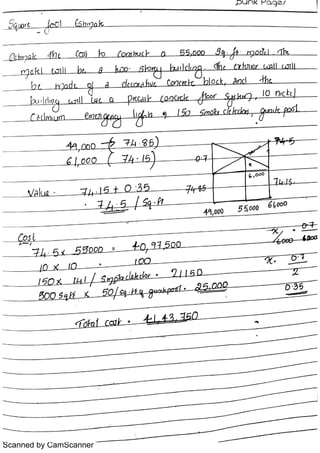 Bunk Pager
Square foot Estimate
Estimate the Cost to Construct a 55,000 Sq. ft model. The
motel will be a two-story building. The exterior wall will
be made of a decorative Concrete block, and the
building will use a precast concrete floor system, 10 nickel
Cadmium emergency lights, 150 smoke detectors, gunite pool
49,000 → 74.85)
61,000 ( 74.15)
Value - 74.15 + 0.35
= 74.5 / Sq.ft
0.7
74.5
6,000
74.15
74.85
49,000 55000 61000
Cost
74.5 x 55000 = 40,97,500
10 x 10 = 100
150x 141 / Smoke detector = 21150
500 Sq ft x 50/sq.ft gunite pool = 25,000
Total cost = 41,43,750
x/6000 = 0.7
x = 0.7
2
0.35
Scanned by CamScanner